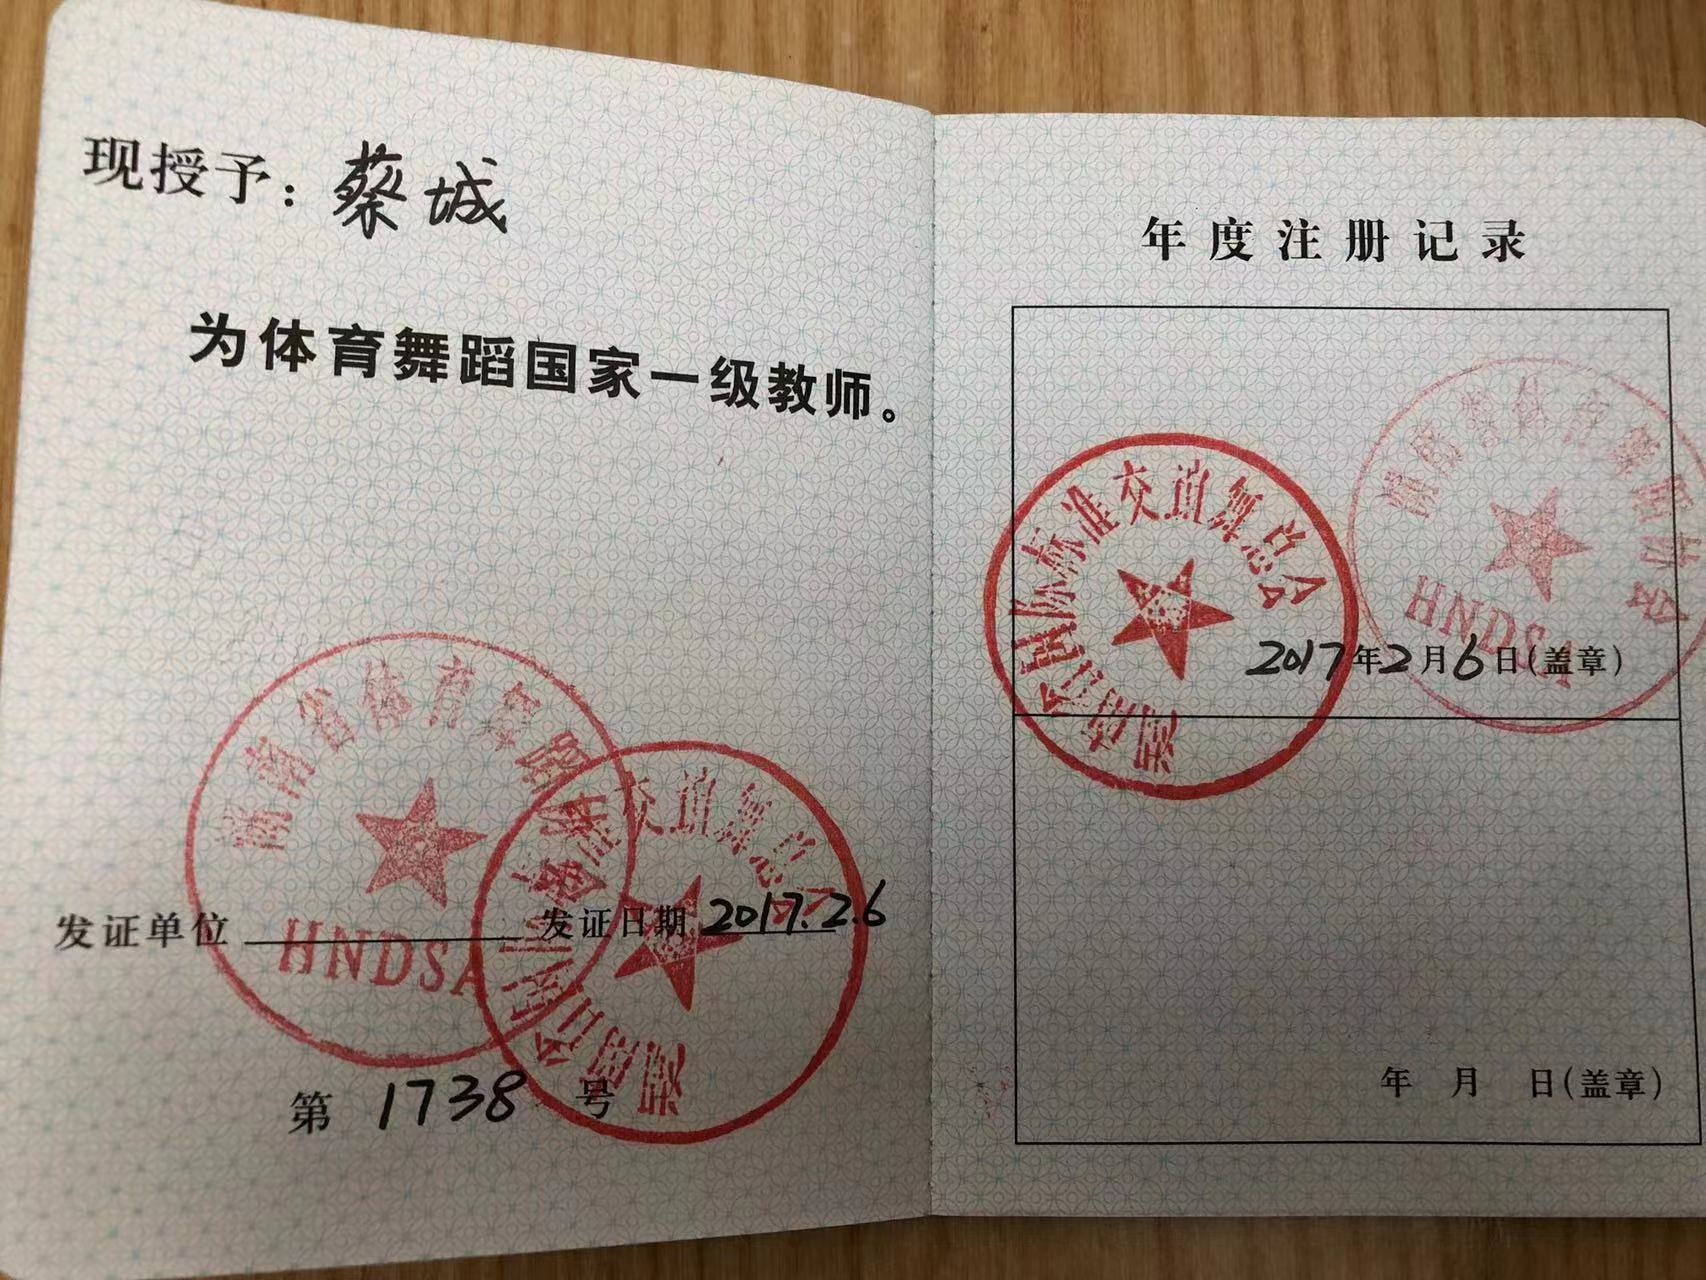 现授予：蔡城
为体育舞蹈国家一级教师。
湖南省体育舞蹈
HNDSA
交谊舞总会
发证单位 发证日期 2017.2.6
第 1738 号
年度注册记录
湖南省国际标准交谊舞总会
湖南省体育舞蹈协会
HNDSA
2017年2月6日(盖章)
年 月 日(盖章)